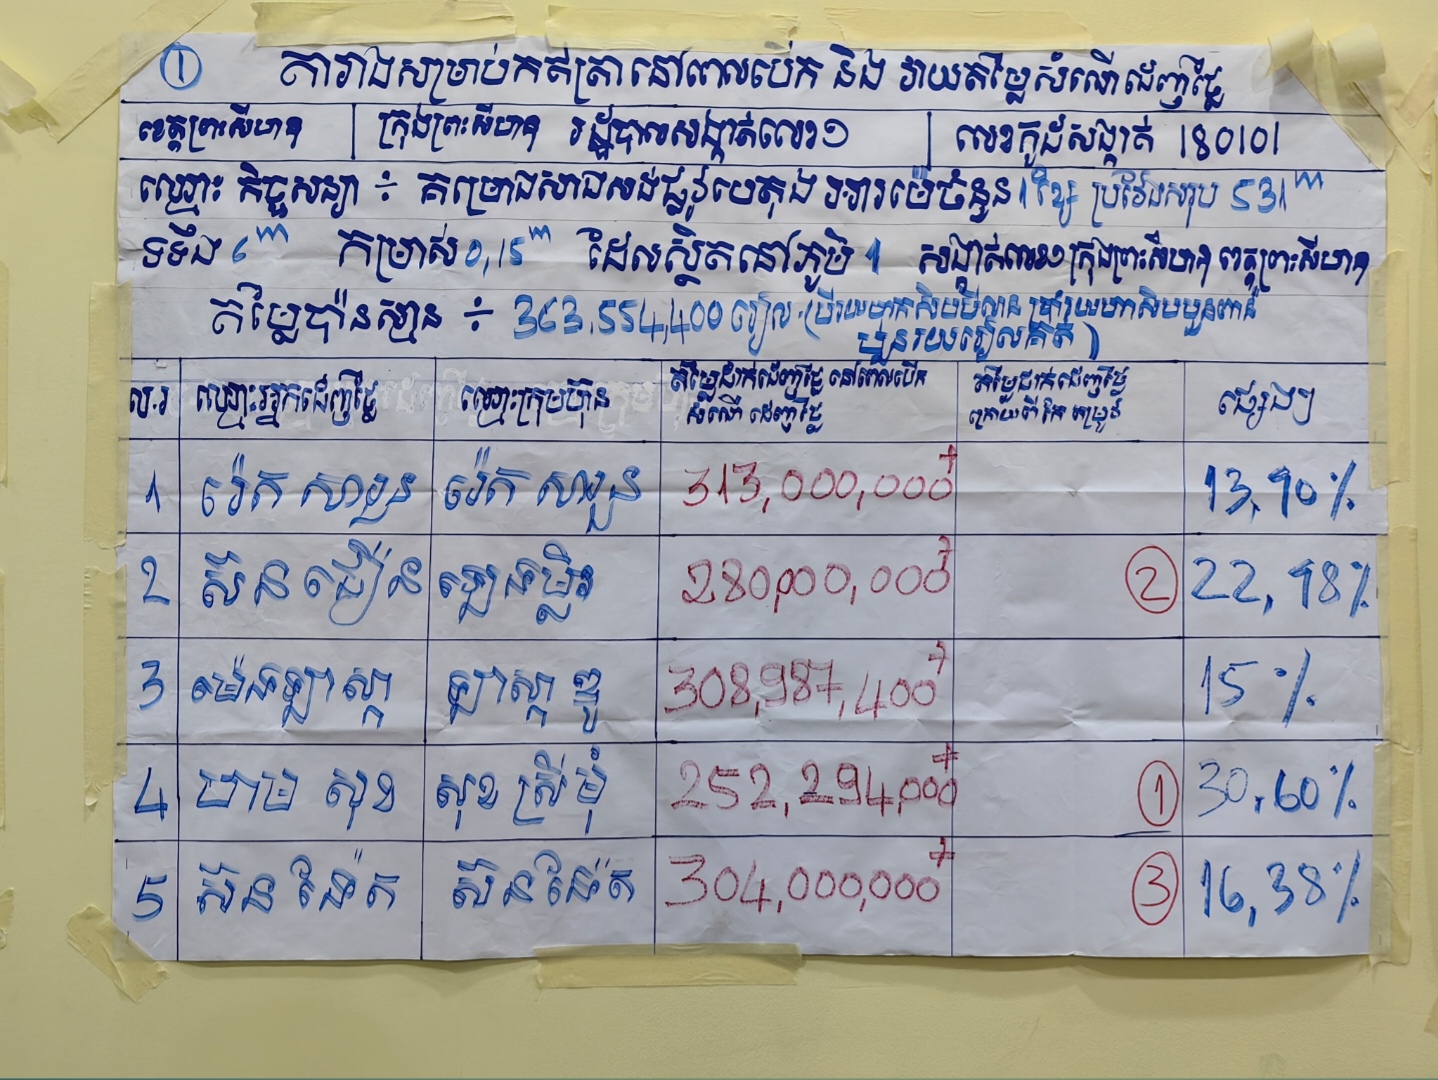 ①
តារាងសម្រាប់កត់ត្រានៅពេលបើក និង វាយតម្លៃសំណើដេញថ្លៃ
ខេត្តព្រះសីហនុ ក្រុងព្រះសីហនុ រដ្ឋបាលសង្កាត់លេខ១ លេខកូដសង្កាត់ 180101
ឈ្មោះ កិច្ចសន្យា ÷ គម្រោងសាងសង់ផ្លូវបេតុង អារម៉េចំនួន 1 ខ្សែ ប្រវែងសរុប 531m
ទទឹង 6m កម្រាស់ 0,15m ដែលស្ថិតនៅភូមិ 1 សង្កាត់លេខ១ ក្រុងព្រះសីហនុ ខេត្តព្រះសីហនុ
តម្លៃប៉ាន់ស្មាន ÷ 363.554,400 រៀល
បួនរយរៀលគត់ )
ល.រ ឈ្មោះអ្នកដេញថ្លៃ ឈ្មោះក្រុមហ៊ុន តម្លៃដាក់ដេញថ្លៃ នៅពេលបើក សំណើ ដេញថ្លៃ តម្លៃដាក់ដេញថ្លៃ ក្រោយពី កែ តម្រូវ ផ្សេងៗ
1 313,000,000 13,90%
2 ស៊ន 280,000,000 ② 22,98%
3 308,987,400 15%
4 ហាម សុខ សុខ ស្រីមុំ 252,294,000 ① 30.60%
5 304,000,000 ③ 16,38%